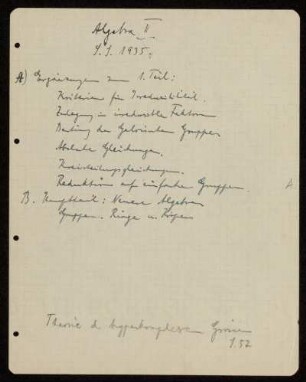 Algebra II
S.S. 1935.
A) Ergänzungen zum 1. Teil:
Kriterien für Irreduzibilität.
Zerlegung in irreduzible Faktoren
der Galois'schen Gruppe
Gleichungen.
Kreisteilungsgleichungen.
Reduktion auf einfache Gruppen.
B. Hauptteil: Neuere Algebra
Gruppen, Ringe u. Körper
Theorie d. hyperkomplexen Grössen
S. 52